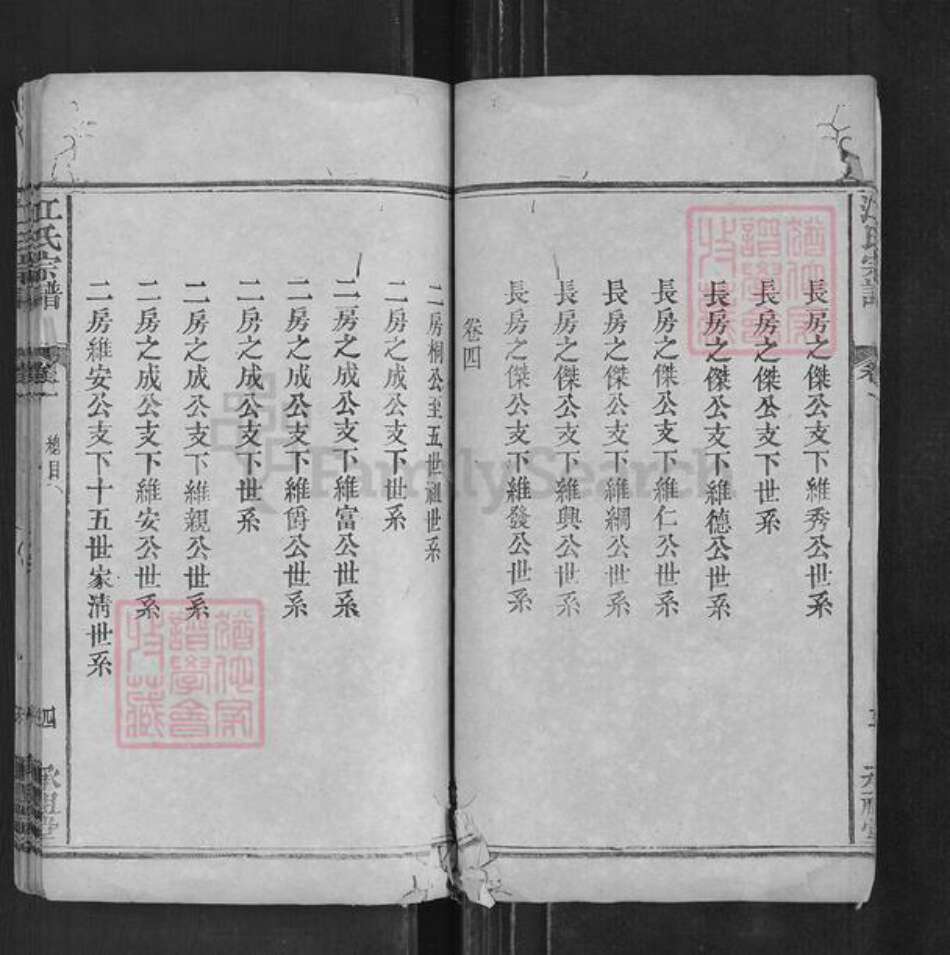 江氏宗譜
長房之傑公支下維秀公世系
長房之傑公支下世系
長房之傑公支下維德公世系
長房之傑公支下維仁公世系
長房之傑公支下維綱公世系
長房之傑公支下維興公世系
長房之傑公支下維發公世系
卷四
二房桐公至五世祖世系
二房之成公支下世系
二房之成公支下維富公世系
二房之成公支下維爵公世系
二房之成公支下世系
二房之成公支下維親公世系
二房之成公支下維安公世系
二房維安公支下十五世家清世系
江氏宗譜
卷一
總目
四
承祖堂
FamilySearch